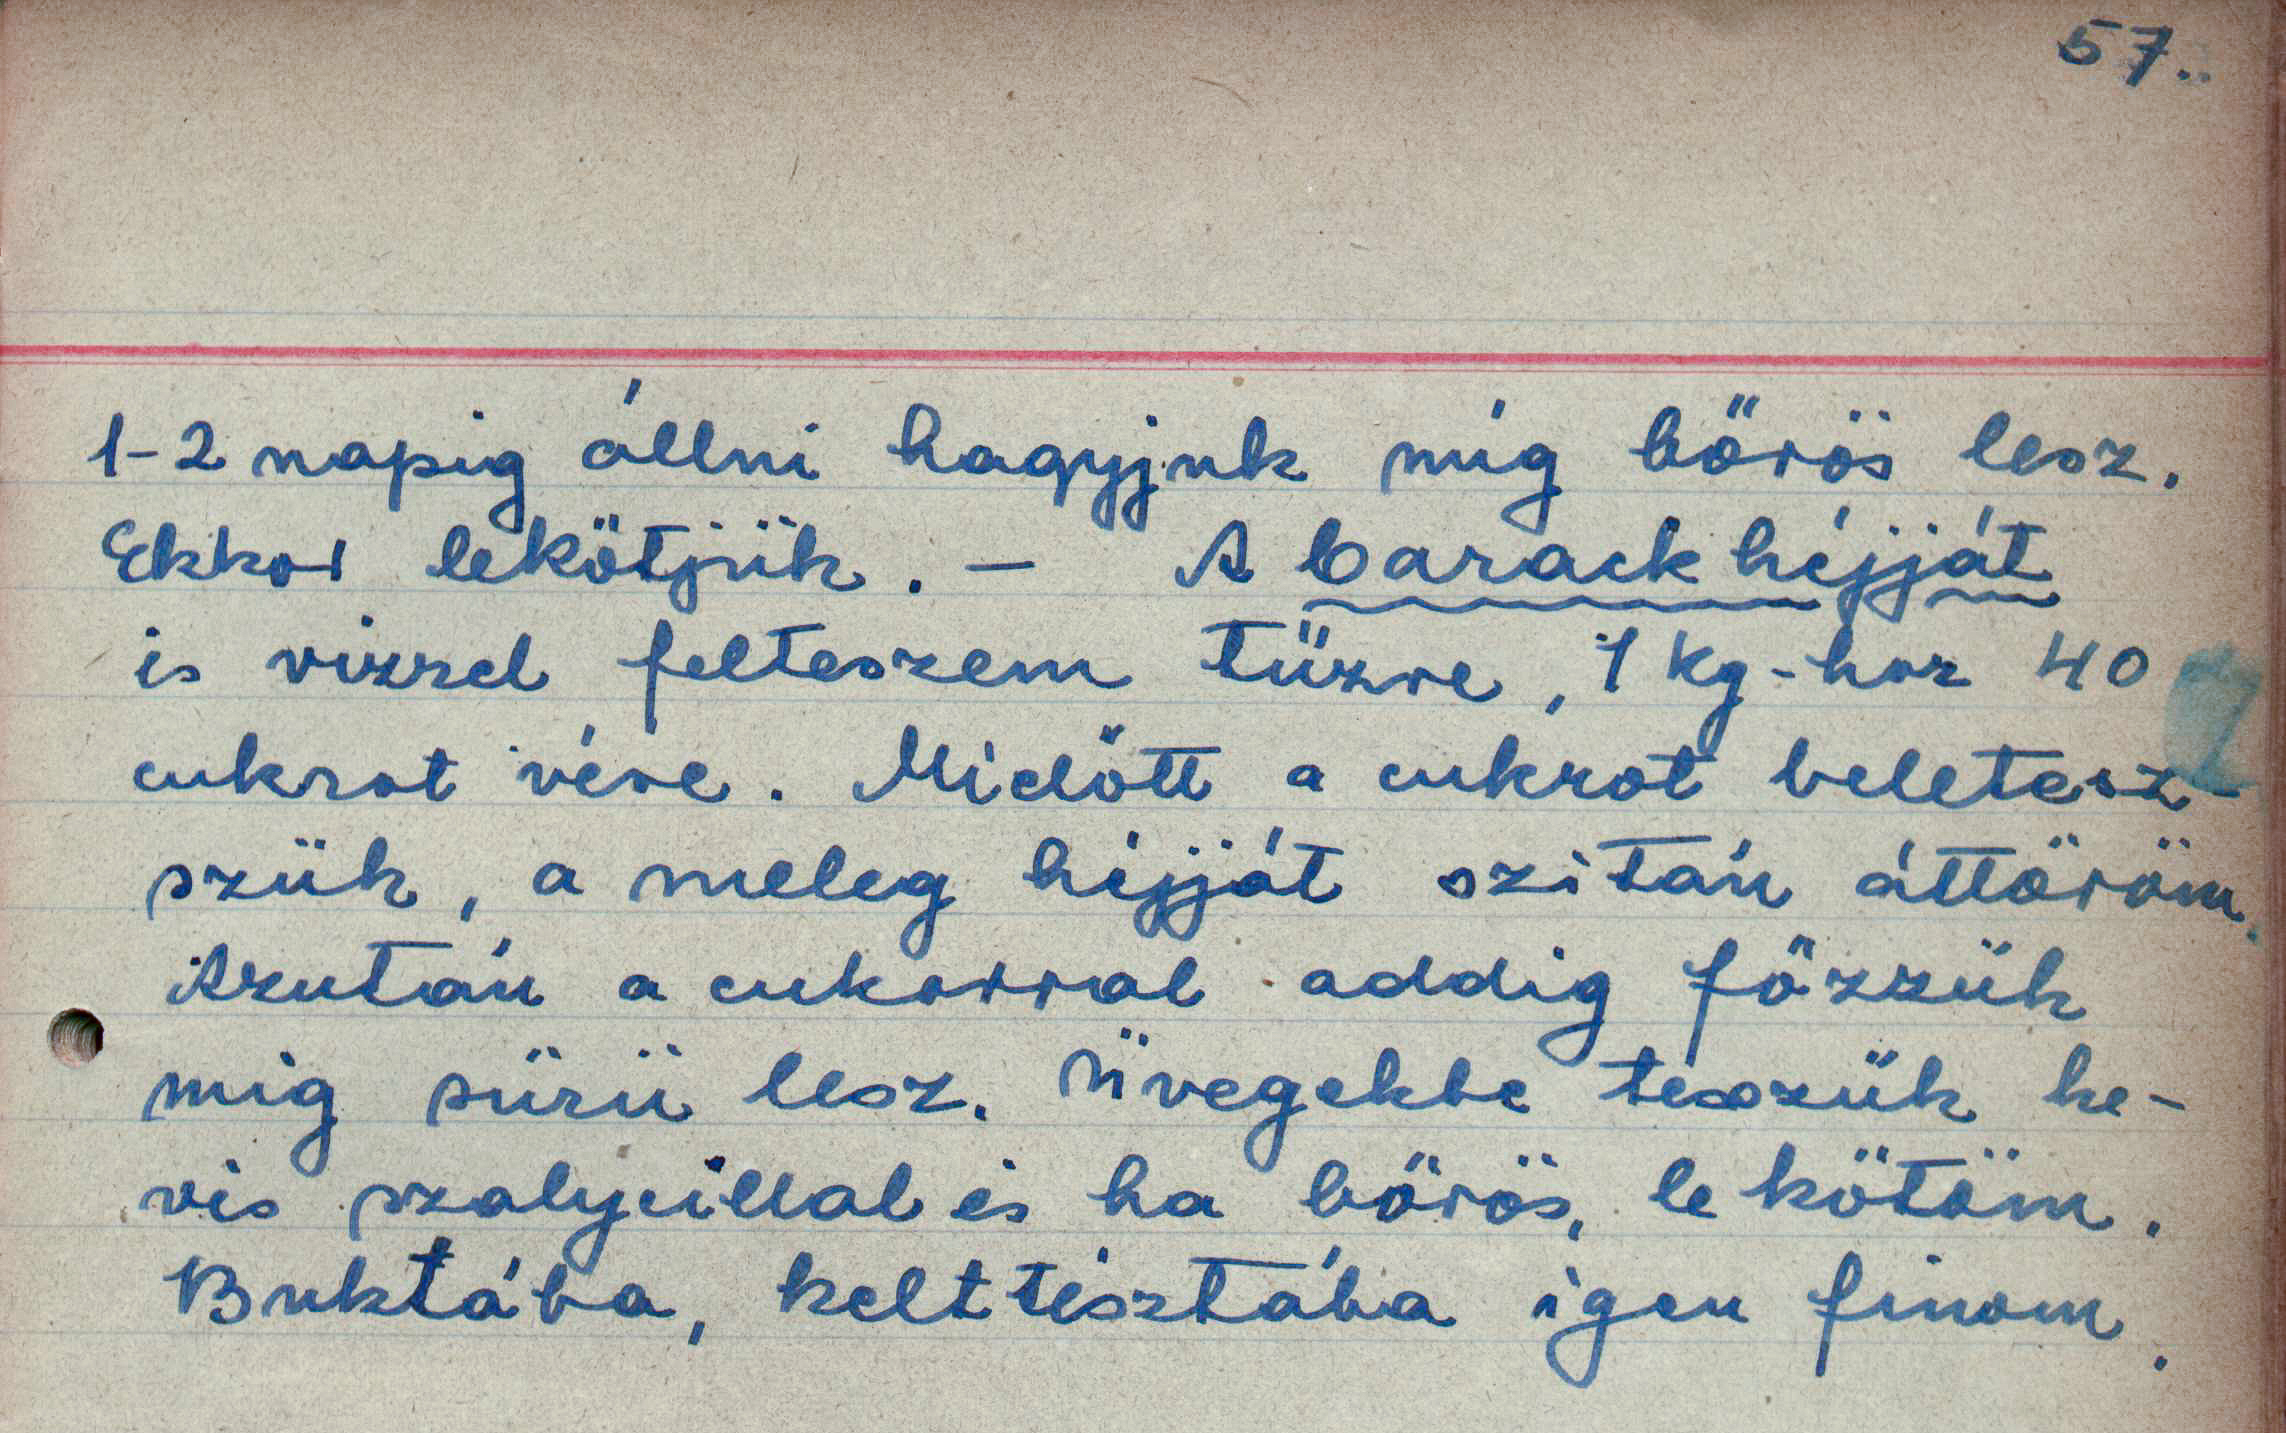 57.
1-2 napig állni hagyjuk míg bőrös lesz.
Ekkor lekötjük. – A barack héjját
is vizzel felteszem tüzre, 1 kg-hoz 40
cukrot véve. Mielőtt a cukrot beletesz-
szük, a meleg héjját szitán áttöröm.
Azután a cukorral addig főzzük
mig sürü lesz. Üvegekbe tesszük ke-
vés szalycillal és ha bőrös, lekötöm.
Buktába, kelttésztába igen finom.